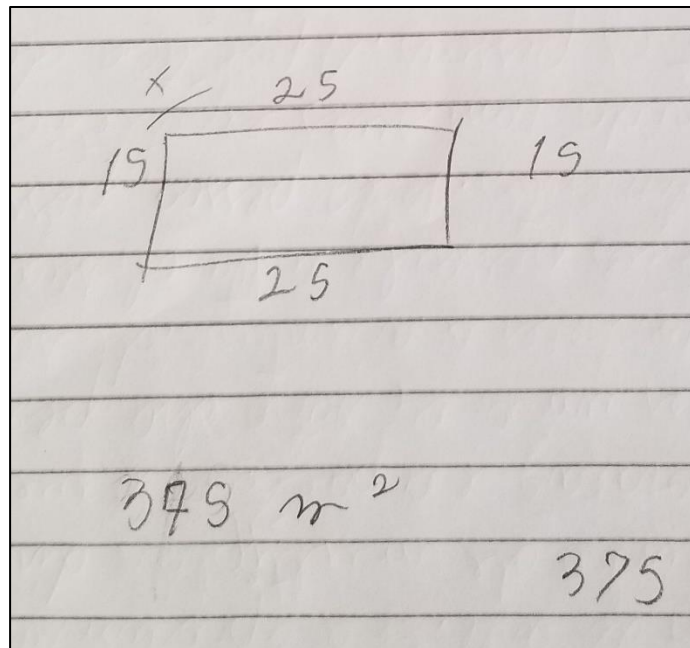 x 25
15 15
25
375 m²
375